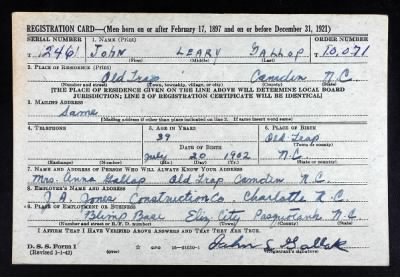 REGISTRATION CARD—(Men born on or after February 17, 1897 and on or before December 31, 1921)
SERIAL NUMBER 1. NAME (Print) ORDER NUMBER
T. 1246 John Leary Gallop T. 10,071
(First) (Middle) (Last)
2. PLACE OF RESIDENCE (Print)
Old Trap Camden N.C.
(Number and street) (Town, township, village, or city) (County) (State)
[THE PLACE OF RESIDENCE GIVEN ON THE LINE ABOVE WILL DETERMINE LOCAL BOARD
JURISDICTION; LINE 2 OF REGISTRATION CERTIFICATE WILL BE IDENTICAL]
3. MAILING ADDRESS
Same
(Mailing address if other than place indicated on line 2. If same insert word same)
4. TELEPHONE 5. AGE IN YEARS 6. PLACE OF BIRTH
39 Old Trap
DATE OF BIRTH (Town or county)
July 20 1902 N.C.
(Exchange) (Number) (Mo.) (Day) (Yr.) (State or country)
7. NAME AND ADDRESS OF PERSON WHO WILL ALWAYS KNOW YOUR ADDRESS
Mrs. Anna Gallop Old Trap Camden N.C.
8. EMPLOYER'S NAME AND ADDRESS
J. A. Jones Construction Co. Charlotte N.C.
9. PLACE OF EMPLOYMENT OR BUSINESS
Blimp Base Eliz. City Pasquotank N.C.
(Number and street or R. F. D. number) (Town) (County) (State)
I AFFIRM THAT I HAVE VERIFIED ABOVE ANSWERS AND THAT THEY ARE TRUE.
D. S. S. Form 1
(Revised 1-1-42) GPO 16—21630-1 John L Gallop